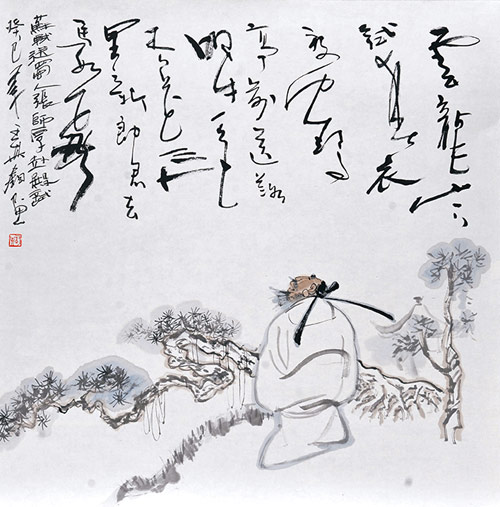 雲龍山下
試春衣
放鶴
亭前送落
暉一色
杏花三十
里新郎君去
馬如飛
蘇軾送蜀人張師厚赴殿試
癸巳年